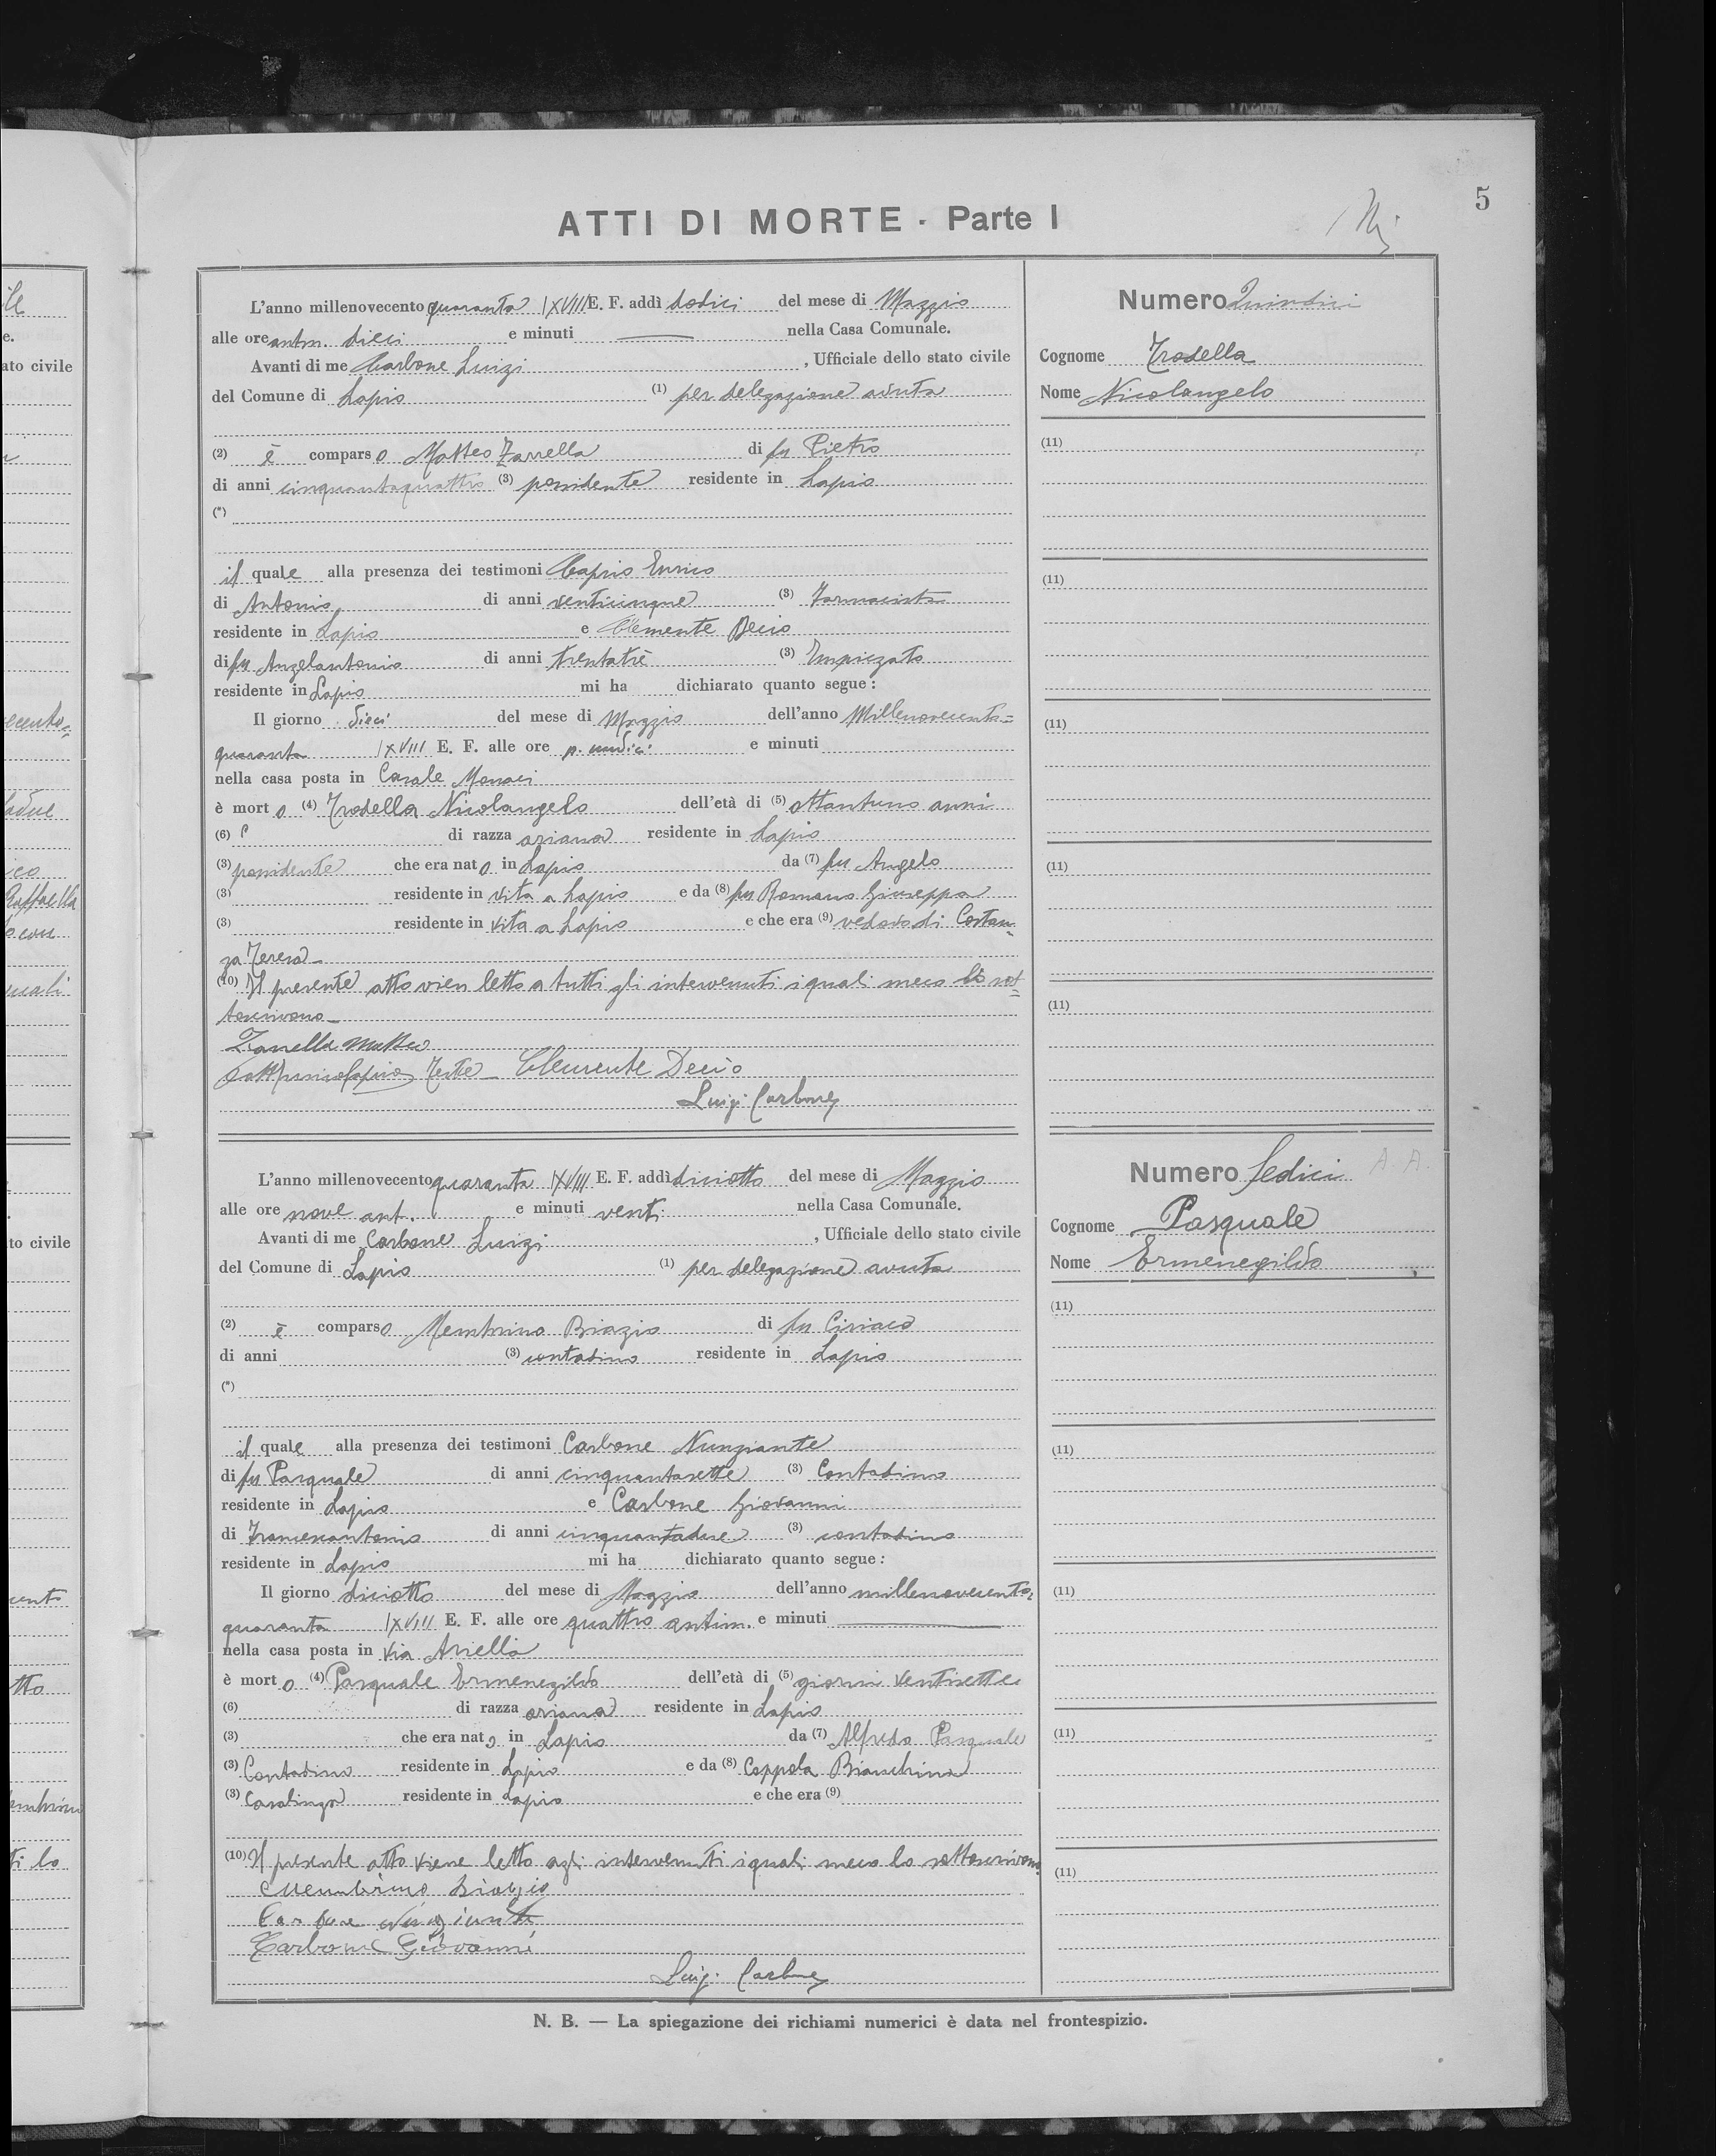 5
ATTI DI MORTE - Parte I
L'anno millenovecento quaranta /XVIII E. F. addì dodici del mese di Maggio
alle ore antm. dieci e minuti — nella Casa Comunale.
Avanti di me Carbone Luigi, Ufficiale dello stato civile
del Comune di Lapio (1) per delegazione avuta
(2) è comparso Matteo Zarrella di fu Pietro
di anni cinquantaquattro (3) possidente residente in Lapio
(*)
il quale alla presenza dei testimoni Caprio Enrico
di Antonio di anni venticinque (3) Farmacista
residente in Lapio e Clemente Decio
di fu Angelantonio di anni trentatrè (3) Impiegato
residente in Lapio mi ha dichiarato quanto segue:
Il giorno dieci del mese di Maggio dell'anno Millenovecento=
quaranta /XVIII E. F. alle ore p. undici e minuti
nella casa posta in Casale Monaci
è morto (4) Trodella Nicolangelo dell'età di (5) ottantuno anni
(6) di razza ariana residente in Lapio
(3) possidente che era nato in Lapio da (7) fu Angelo
(3) residente in vita a Lapio e da (8) fu Romano Giuseppa
(3) residente in vita a Lapio e che era (9) vedovo di Costan=
za Teresa
(10) Il presente atto vien letto a tutti gli intervenuti i quali meco lo sot=
toscrivono
Zarrella Matteo
Teste Clemente Decio
Luigi Carbone
Numero Quindici
Cognome Trodella
Nome Nicolangelo
(11)
(11)
(11)
(11)
(11)
L'anno millenovecento quaranta /XVIII E. F. addì diciotto del mese di Maggio
alle ore nove ant. e minuti venti nella Casa Comunale.
Avanti di me Carbone Luigi, Ufficiale dello stato civile
del Comune di Lapio (1) per delegazione avuta
(2) è comparso Membrino Biagio di fu Ciriaco
di anni (3) contadino residente in Lapio
(*)
il quale alla presenza dei testimoni Carbone Nunziante
di fu Pasquale di anni cinquantasette (3) Contadino
residente in Lapio e Carbone Giovanni
di Francescantonio di anni cinquantadue (3) contadino
residente in Lapio mi ha dichiarato quanto segue:
Il giorno diciotto del mese di Maggio dell'anno millenovecento=
quaranta /XVIII E. F. alle ore quattro antim. e minuti —
nella casa posta in via Ariella
è morto (4) Pasquale Ermenegildo dell'età di (5) giorni ventisette
(6) di razza ariana residente in Lapio
(3) che era nato in Lapio da (7) Alfredo Pasquale
(3) Contadino residente in Lapio e da (8) Coppola Bianchina
(3) Casalinga residente in Lapio e che era (9)
(10) Il presente atto viene letto agli intervenuti i quali meco lo sottoscrivono
Membrino Biagio
Carbone Nunziante
Carbone Giovanni
Luigi Carbone
Numero Sedici A. A.
Cognome Pasquale
Nome Ermenegildo
(11)
(11)
(11)
(11)
(11)
N. B. — La spiegazione dei richiami numerici è data nel frontespizio.